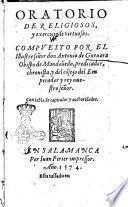 ORATORIO
DE RELIGIOSOS,
y exercicio de virtuosos.
COMPVESTO POR EL
Illustre señor don Antonio de Gueuara
Obispo de Mondoñedo, predicador,
chronista, y del cõsejo del Em
perador y rey nue-
stro señor.
Con tabla de capitulos y autoridades.
EN SALAMANCA
Por Iuan Perier impressor.
Año. 1574.